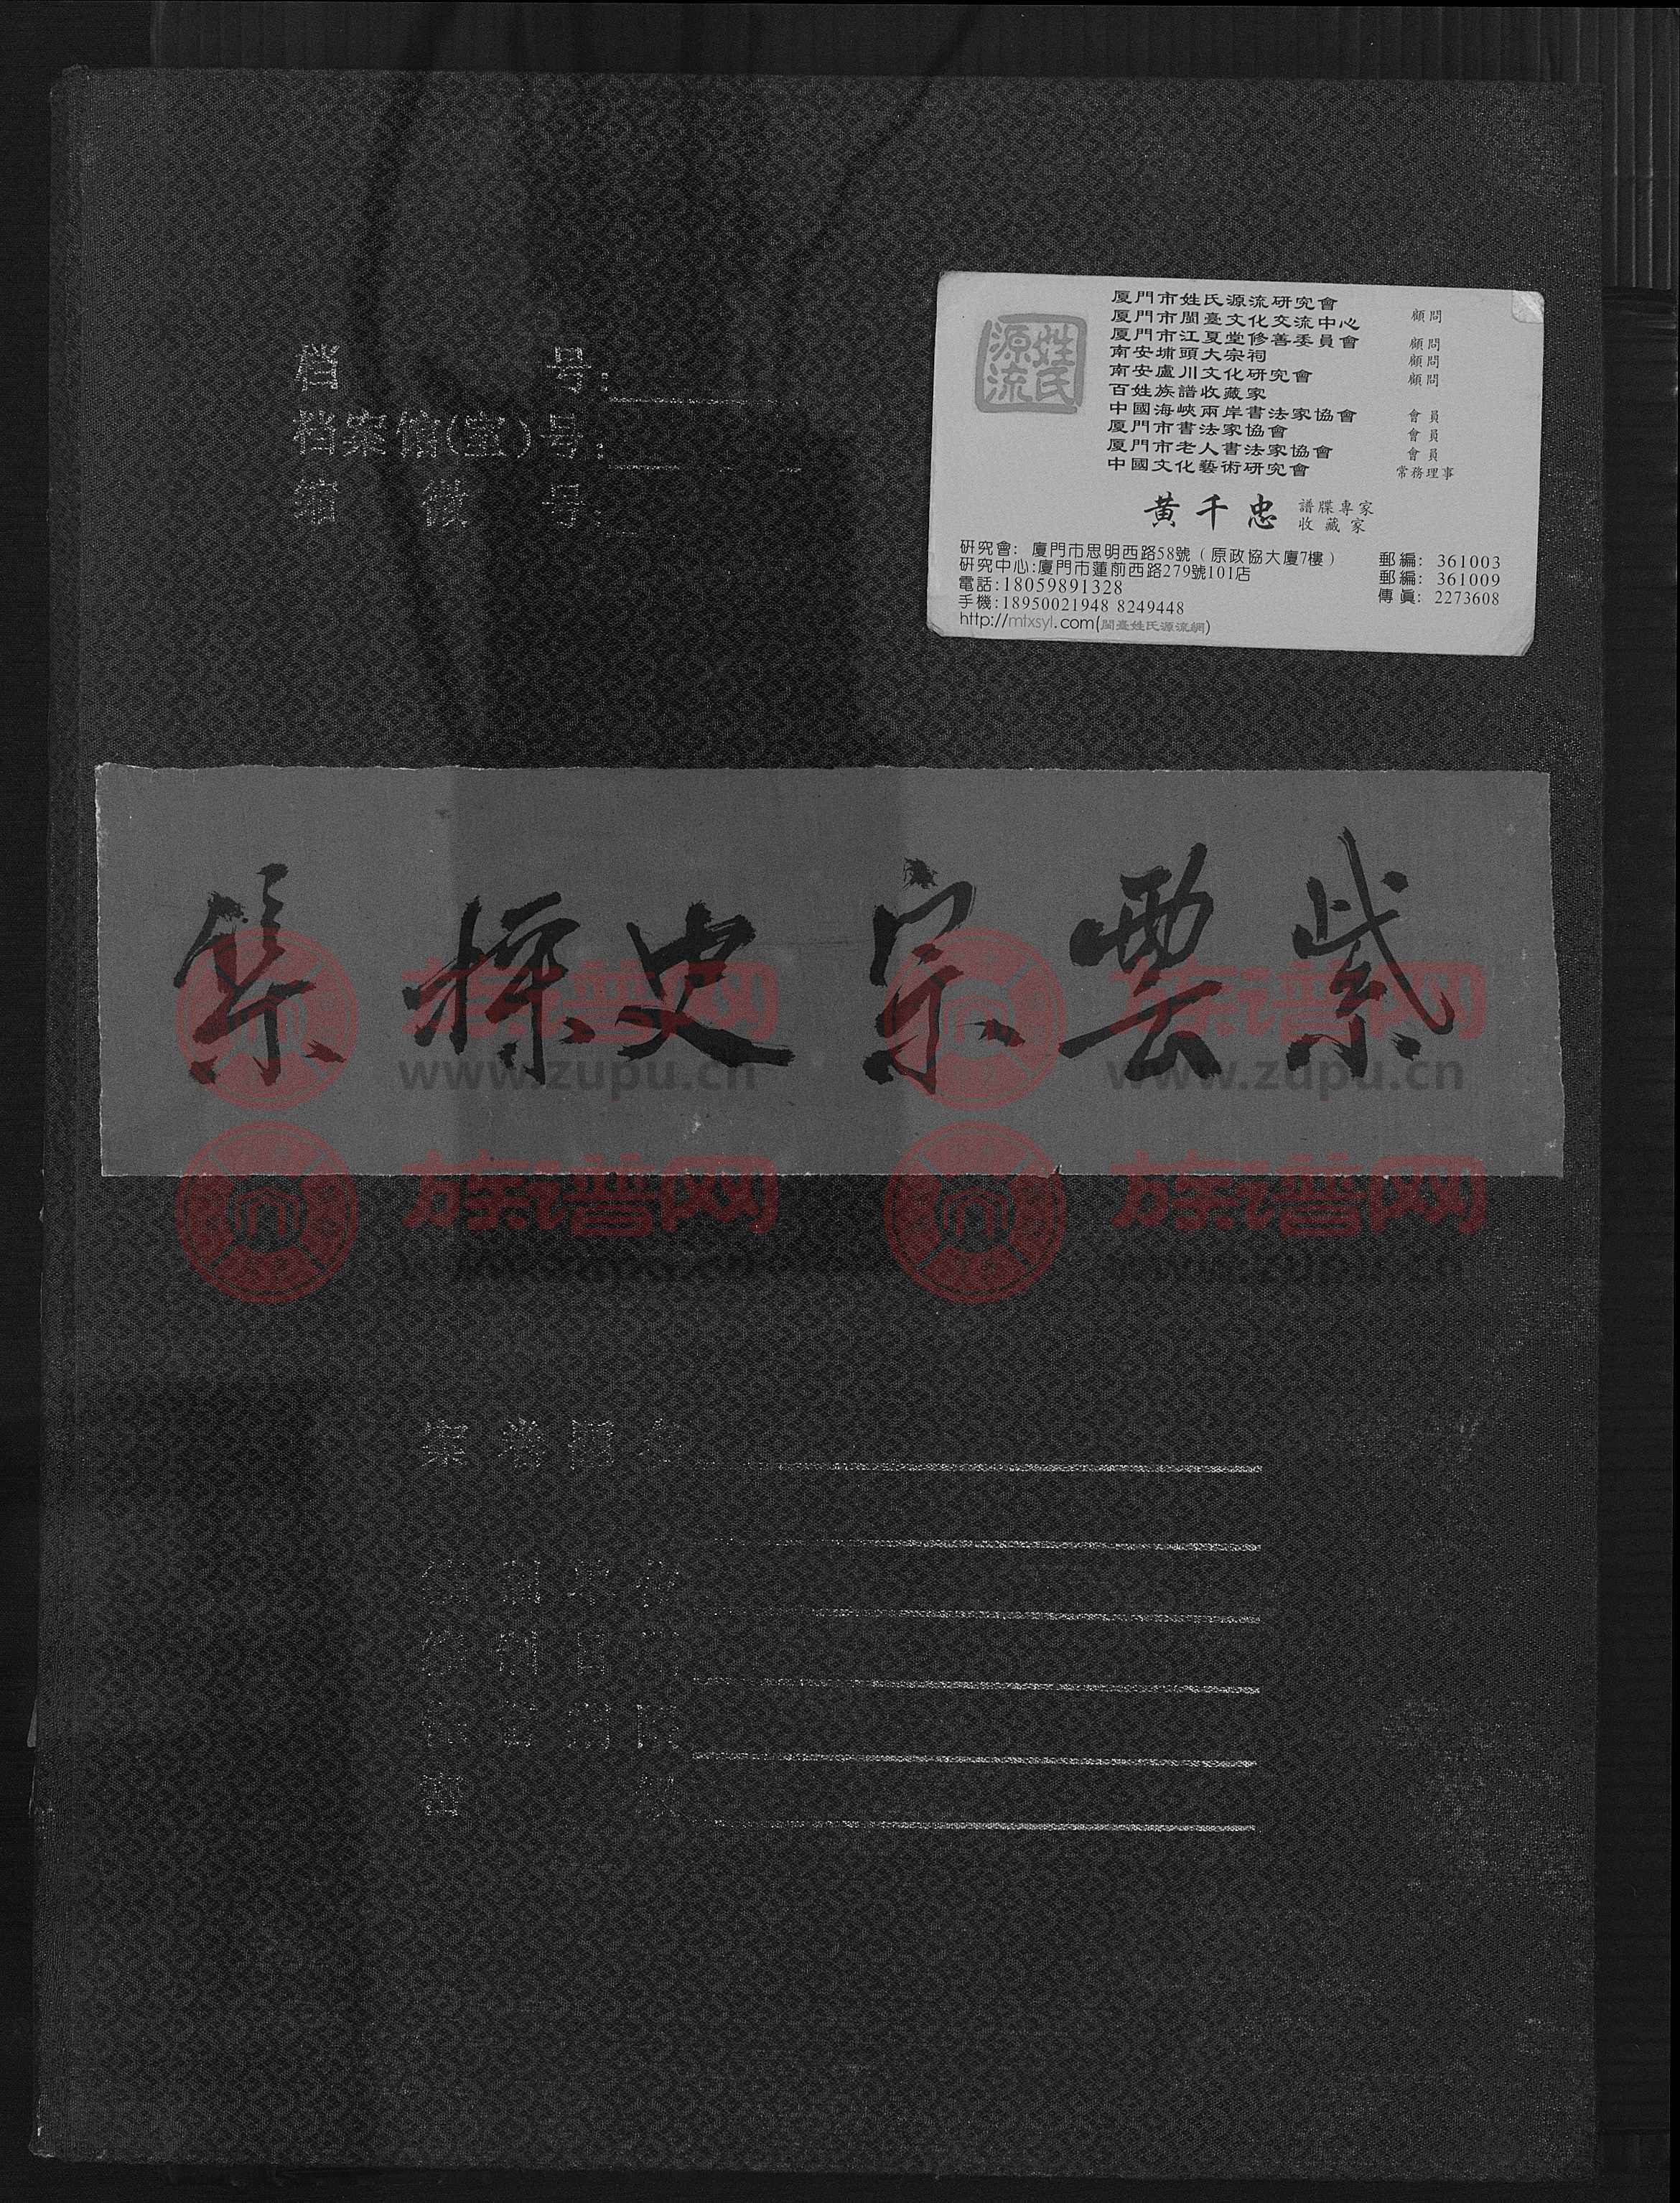 档 号:
档案馆(室)号:
缩 微 号:
姓氏源流
厦門市姓氏源流硏究會
厦門市閩臺文化交流中心 顧問
厦門市江夏堂修善委員會 顧問
南安埔頭大宗祠 顧問
南安盧川文化研究會 顧問
百姓族譜收藏家
中國海峽兩岸書法家協會 會員
厦門市書法家協會 會員
厦門市老人書法家協會 會員
中國文化藝術研究會 常務理事
黄千忠 譜牒專家
收藏家
研究會: 廈門市思明西路58號(原政協大廈7樓) 郵編: 361003
研究中心:廈門市蓮前西路279號101店 郵編: 361009
電話:18059891328 傳眞: 2273608
手機:18950021948 8249448
http://mtxsyl.com(閩臺姓氏源流網)
紫雲宗史採集
族谱网 族谱网
www.zupu.cn www.zupu.cn
族谱网 族谱网
www.zupu.cn www.zupu.cn
案卷题名
编制单位
编制日期
保管期限
密 级